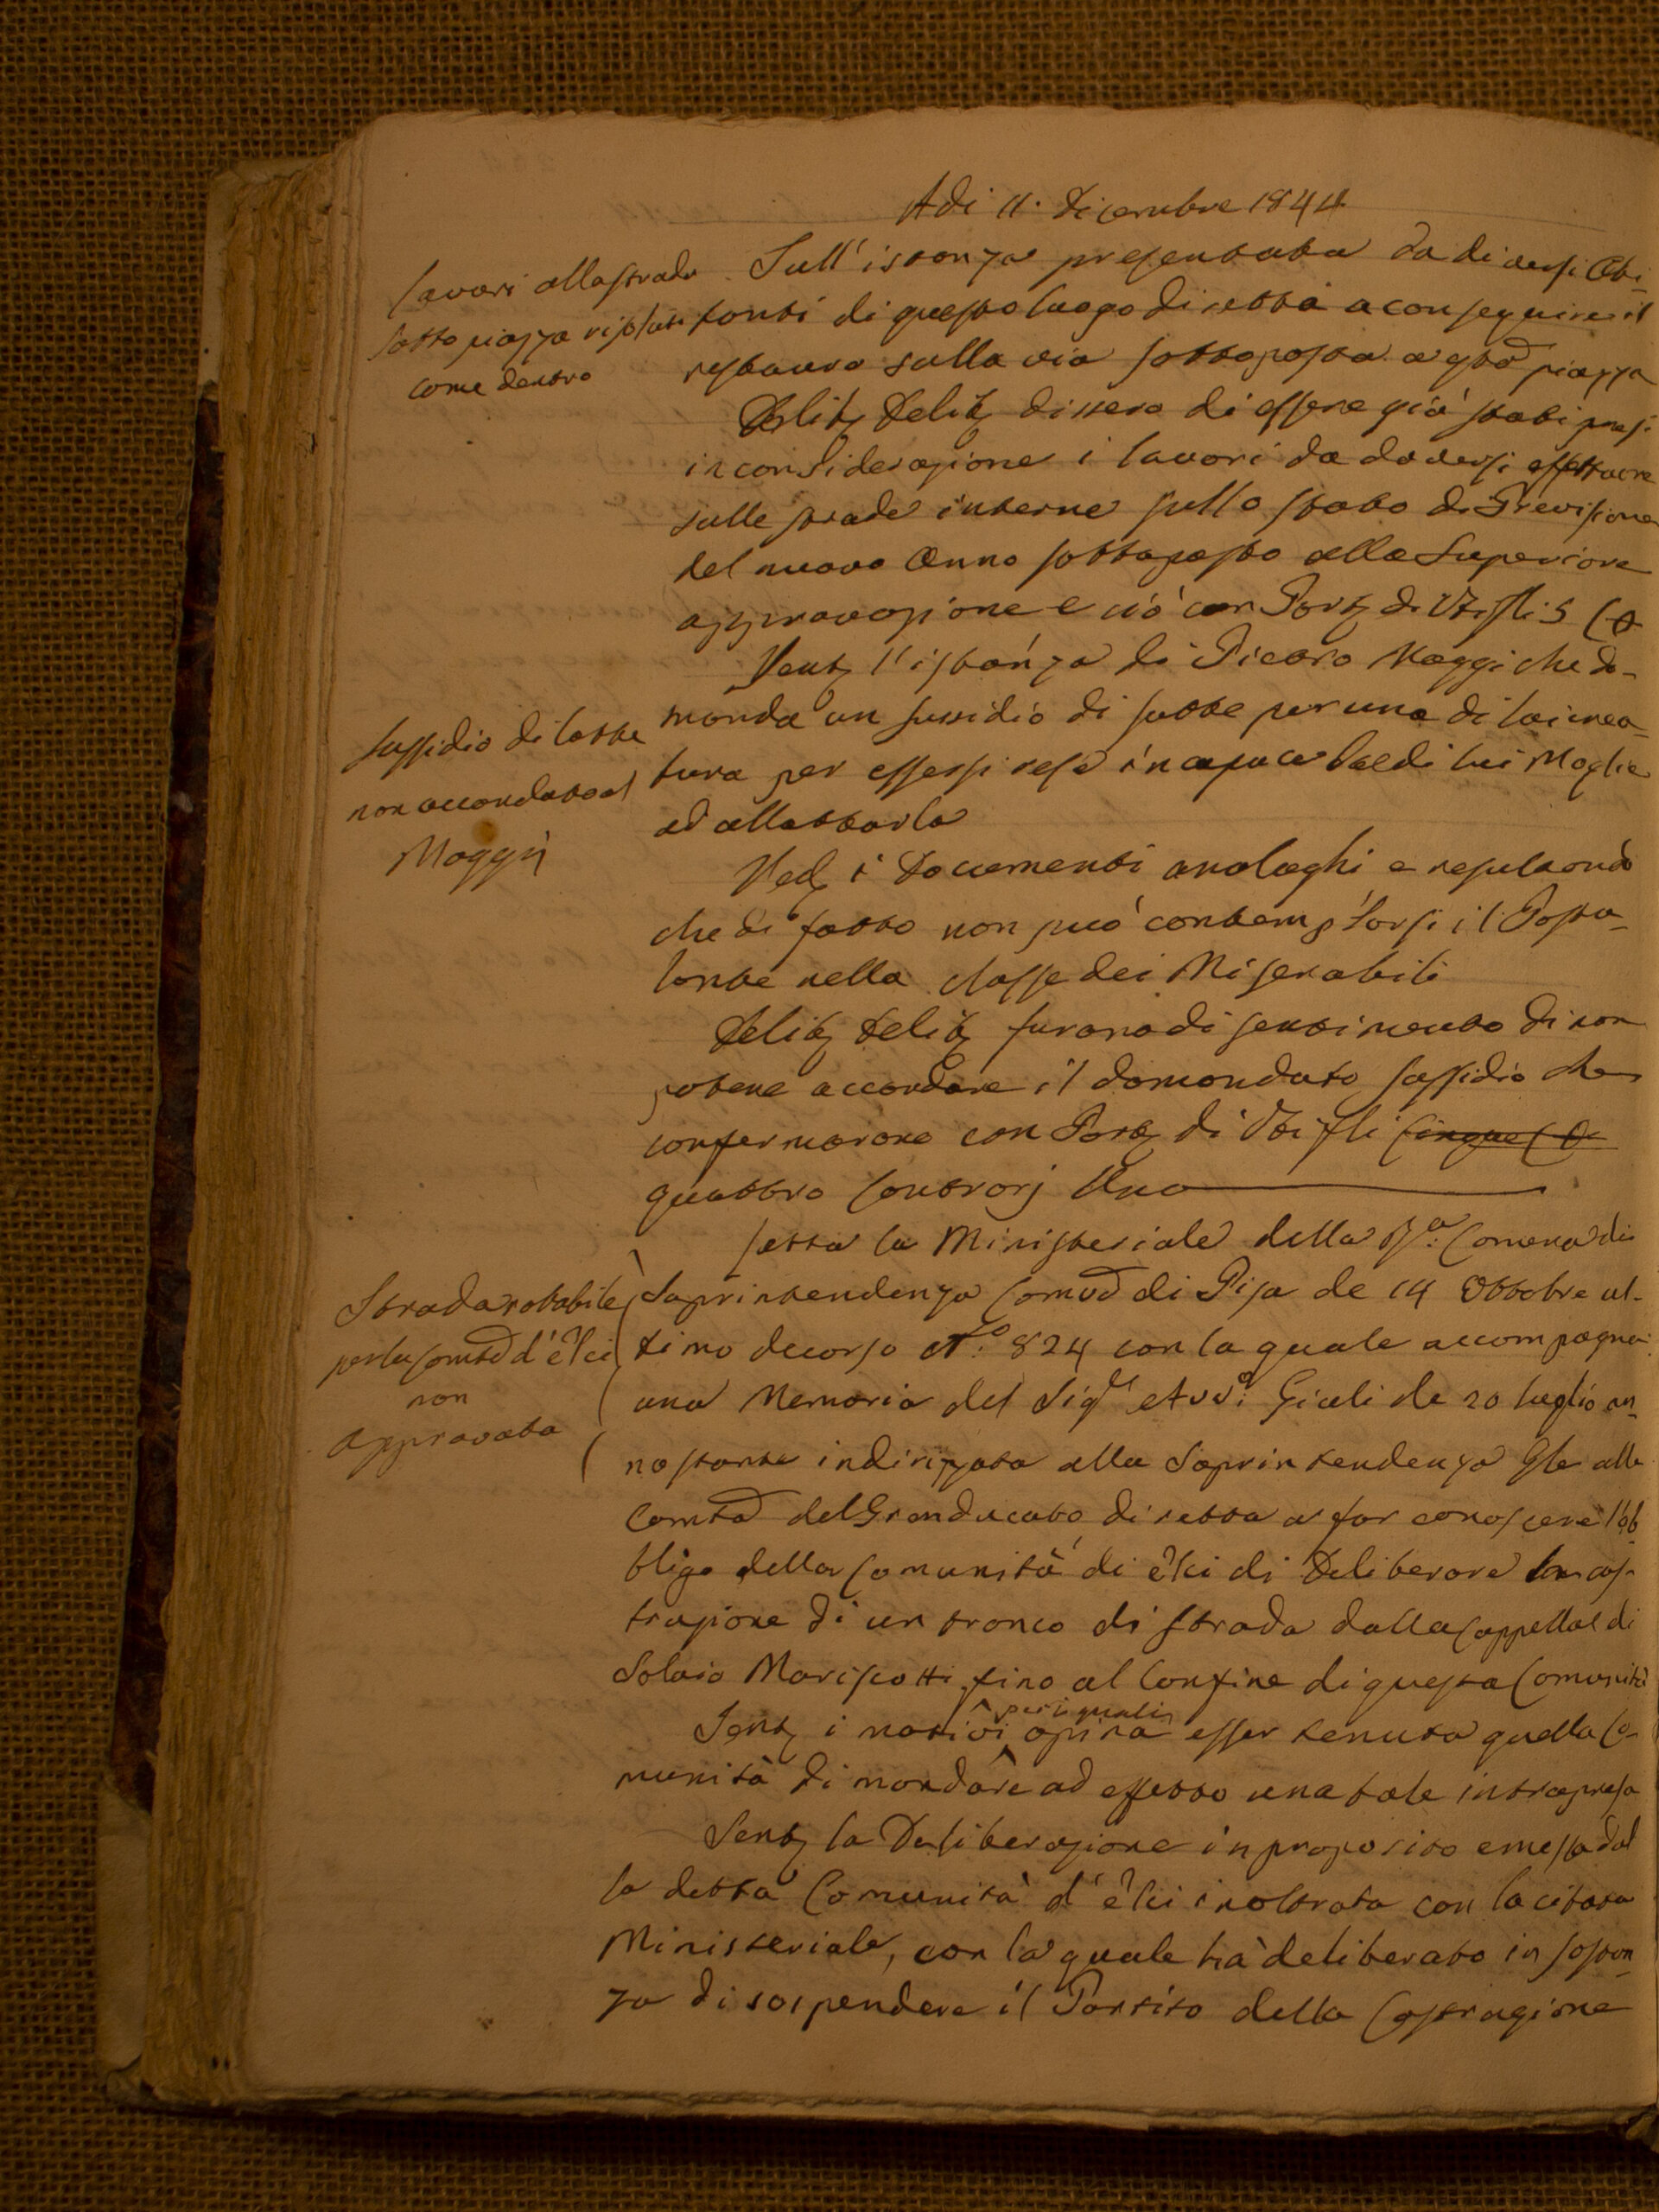 Adi 11. Dicembre 1844
Lavori alla strada
sotto piazza
come dentro
Sull' istanza presentata da diversi Abi-
tanti di questo luogo diretta a conseguire il
restauro sulla via sottoposta a qta piazza
Delib Delib dissero di essere già stati presi
in considerazione i lavori da doversi effettuare
sulle strade interne sullo stato di Previsione
del nuovo Anno sottoposto alla Superiore
approvazione e ciò con Part di Vti fli 5 C 0
Sussidio di latte
non accordato al
Maggi
Sent l' istanza di Pietro Maggi che do-
manda un sussidio di latte per una di lui crea-
tura per essersi resa incapace la di lui Moglie
ad allattarla
Ved i Documenti analoghi e resultando
che di fatto non può contemplarsi il Postu-
lante nella classe dei Miserabili
Delib Delib furono di sentimento di non
potere accordare il domandato sussidio che
confermarono con Part di Vti fli cinque C 0
quattro Contrarj Uno
Strada rotabile
per la Comtà d' Elci
non
approvata
Letta la Ministeriale della Ra: Camera di
Soprintendenza Comva di Pisa de 14 Ottobre ul-
timo decorso No: 824 con la quale accompagna
una Memoria del Sigr Avvo: Giuli de 20 luglio an-
no stante indirizzata alla Soprintendenza Gle alle
Comtà del Granducato diretta a far conoscere l'ob
bligo della Comunità di Elci di Deliberare la cos-
truzione di un tronco di strada dalla Cappella di
Solaio Mariscotti fino al Confine di questa Comunità
Sent i motivi per i quali opina esser tenuta quella Co-
munità di mandare ad effetto una tale intrapresa
Sent la Deliberazione in proposito emessa dal
la detta Comunità d' Elci inoltrata con la citata
Ministeriale, con la quale ha deliberato in sostan-
za di sospendere il Partito della Costruzione